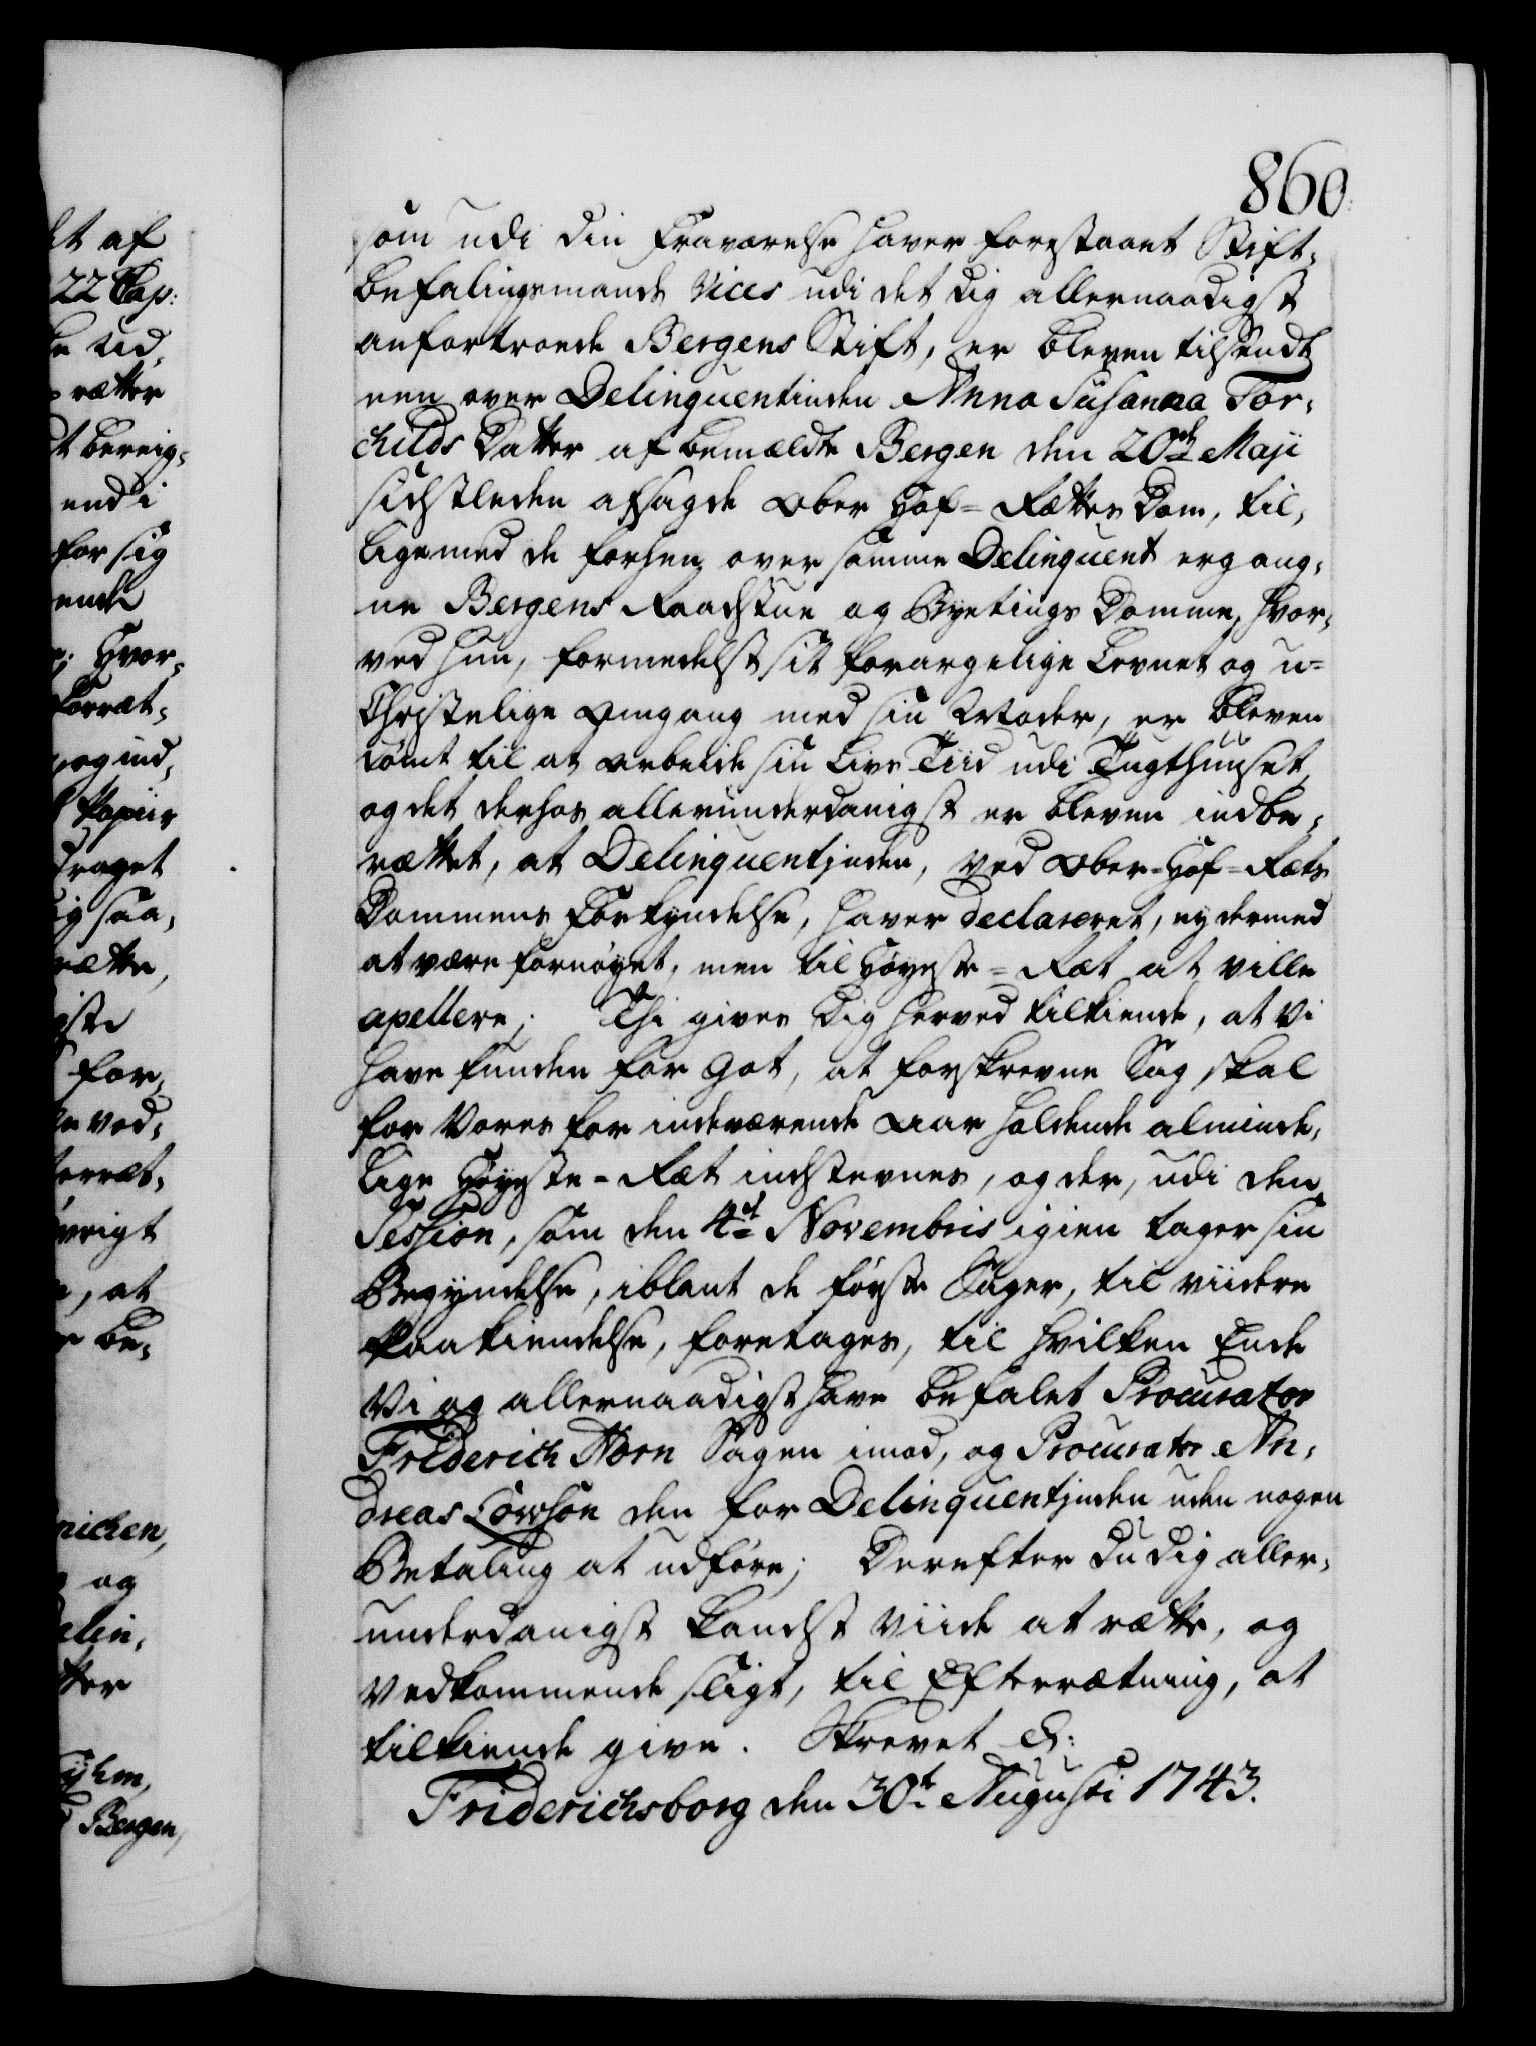 860.
som udi din Fraværelse haver forestaaet Stift-
befalingsmands Vices udi det dig allernaadigst
anfortroede Bergens Stift, er bleven tilsendt
een over Delinquentinden Anna Susanna Tor-
childs Datter af bemældte Bergen den 20de Maji
sidstleden afsagde Ober Hof-Rettes Dom, til-
ligemed de forhen over samme Delinquent ergang-
ne Bergens Raadstue og Byetings Domme, hvor-
ved hun, formedelst sit forargelige Levnet og u-
Christelige Omgang med sin Moder, er bleven
dömt til at arbeide sin Livs Tiid udi Tugthuuset,
og det derhos allerunderdanigst er bleven indbe-
rættet, at Delinquentinden, ved Ober-Hof-Rets
Dommens Forkyndelse, haver declareret, ey dermed
at være fornøyet, men til Høyeste-Ræt at ville
apellere; Thi gives dig herved tilkiende, at Vi
have funden for got, at forskrevne Sag skal
for Vores for indeværende Aar holdende alminde-
lige Høyeste-Ræt indstevnes, og der, udi den
Session, som den 4de Novembris igien tager sin
Begyndelse, iblant de første Sager, til viidere
Paakiendelse, foretages, til hvilken Ende
Vi og allernaadigst have befalet Procurator
Friderich Horn Sagen imod, og Procurator An-
dreas Lowson den for Delinquentinden uden nogen
Betaling at udføre; Derefter du dig aller-
underdanigst kandst viide at rætte, og
vedkommende sligt, til Efterrætning, at
tilkiende give. Skrevet &:
Friderichsborg den 30te Augusti 1743.
et af
22 Cap:
rætter
end i
for sig
Hvor-
for-
at
be-
og
Bergen,